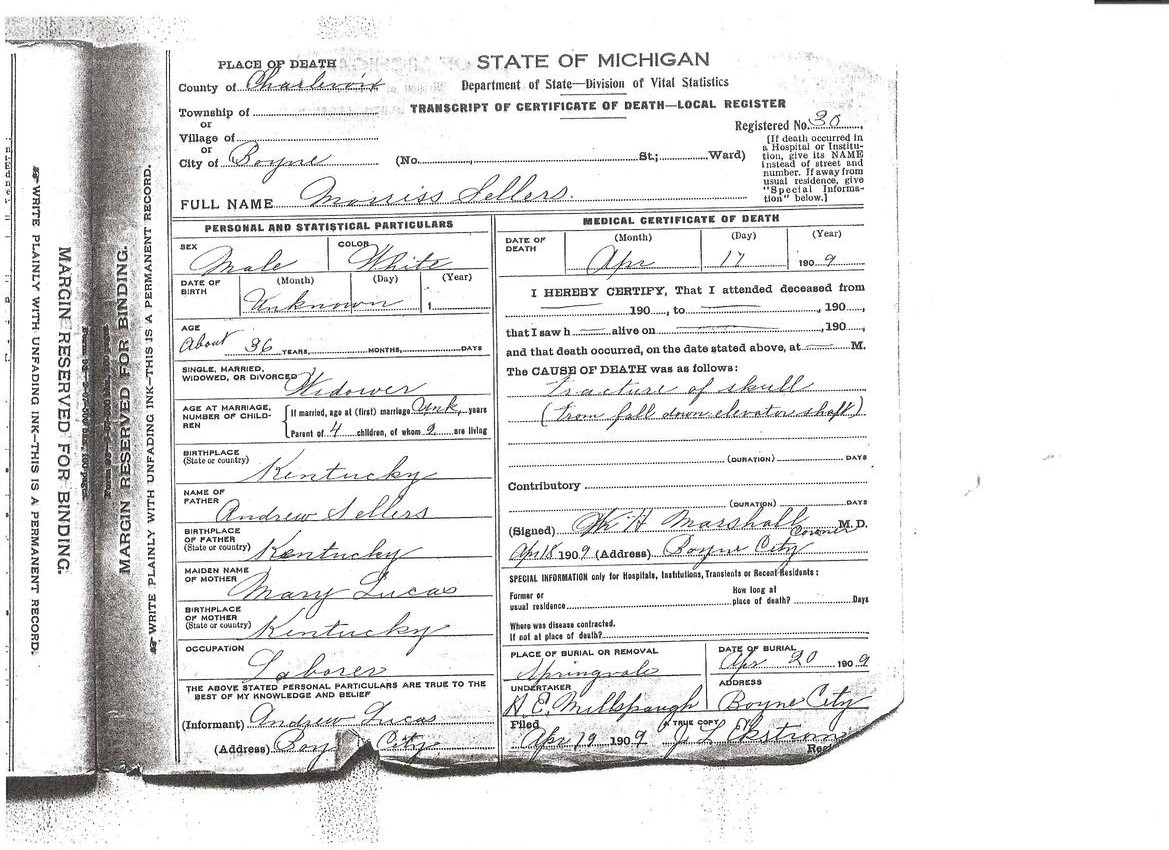 WRITE PLAINLY WITH UNFADING INK—THIS IS A PERMANENT RECORD.
MARGIN RESERVED FOR BINDING.
MARGIN RESERVED FOR BINDING.
WRITE PLAINLY WITH UNFADING INK—THIS IS A PERMANENT RECORD.
PLACE OF DEATH
STATE OF MICHIGAN
County of Charlevoix
Department of State—Division of Vital Statistics
Township of
TRANSCRIPT OF CERTIFICATE OF DEATH—LOCAL REGISTER
or
Village of
Registered No. 30
or
City of Boyne (No. , St.; Ward)
[If death occurred in
a Hospital or Institu-
tion, give its NAME
instead of street and
number. If away from
usual residence, give
"Special Informa-
tion" below.]
FULL NAME Morriss Sellers.
PERSONAL AND STATISTICAL PARTICULARS
SEX Male
COLOR White
DATE OF BIRTH (Month) (Day) (Year)
Unknown 1
AGE
About 36 YEARS, MONTHS, DAYS
SINGLE, MARRIED,
WIDOWED, OR DIVORCED Widower
AGE AT MARRIAGE,
NUMBER OF CHILD-
REN
If married, age at (first) marriage Unk. years
Parent of 4 children, of whom 2 are living
BIRTHPLACE
(State or country) Kentucky
NAME OF
FATHER Andrew Sellers
BIRTHPLACE
OF FATHER
(State or country) Kentucky
MAIDEN NAME
OF MOTHER Mary Lucas
BIRTHPLACE
OF MOTHER
(State or country) Kentucky
OCCUPATION
Laborer
THE ABOVE STATED PERSONAL PARTICULARS ARE TRUE TO THE
BEST OF MY KNOWLEDGE AND BELIEF
(Informant) Andrew Lucas
(Address) Boy City
MEDICAL CERTIFICATE OF DEATH
DATE OF DEATH (Month) (Day) (Year)
Apr 17 1909
I HEREBY CERTIFY, That I attended deceased from
190 , to , 190 ,
that I saw h alive on , 190 ,
and that death occurred, on the date stated above, at M.
The CAUSE OF DEATH was as follows:
Fracture of skull
(from fall down elevator shaft)
(DURATION) DAYS
Contributory
(DURATION) DAYS
(Signed) H Marshall M. D.
Coroner
Apr 18 1909 (Address) Boyne City
SPECIAL INFORMATION only for Hospitals, Institutions, Transients or Recent Residents:
Former or
usual residence
How long at
place of death? Days
Where was disease contracted.
If not at place of death?
PLACE OF BURIAL OR REMOVAL
Springvale
DATE OF BURIAL
Apr 20 1909
UNDERTAKER
A. E. Millspaugh
ADDRESS
Boyne City
Filed
Apr 19 1909
A TRUE COPY
J L Ekstrom
Reg